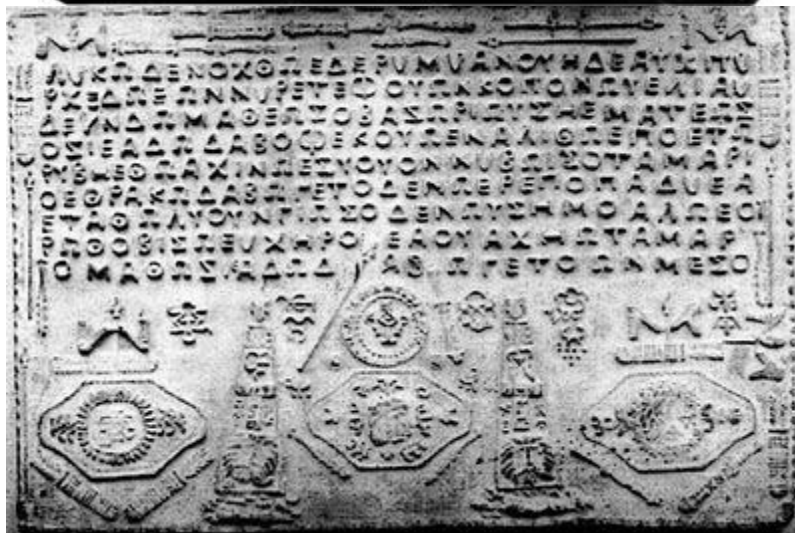 ΛΥΚΩΔΕΝΟΧΘΩΕΔΕΡΥΜΥΑΝΟΥΗΔΕΑΤΧΙΤΥ
ΨΧΕΔΩΕΩΝΝΥΡΕΤΕΦΟΥΩΝΚΟΠΟΝΩΥΕΛΙΑΥ
ΔΕΥΝΔΩΜΑΘΕΩΣΟΒΑΣΩΡΙΩΥΣΗΕΜΑΤΕΩΣ
ΟΣΙΕΑΔΩΔΑΒΟΦΕΚΟΥΩΕΝΑΛΙΘΩΕΠΟΕΤΩ
ΡΥΒΗΕΘΠΑΧΙΝΩΕΣΥΟΥΟΝΝΥΒΩΙΣΟΤΑΜΑΡΙ
ΟΕΘΡΑΚΩΔΑΒΩΓΕΤΟΔΕΝΩΕΡΕΠΟΠΑΔΥΕΑ
ΕΨΑΘΩΛΥΟΥΝΓΙΩΣΟΔΕΝΩΥΣΗΜΟΑΛΩΕΟΙ
ΡΩΘΟΒΙΣΩΕΥΧΗΡΟΙΕΑΟΥΑΧΗΩΤΑΜΑΡ
ΟΜΑΘΩΣΙΑΔΩΔ ΑΒΙΩΓΕΤΟΩΝΜΕΣΟ